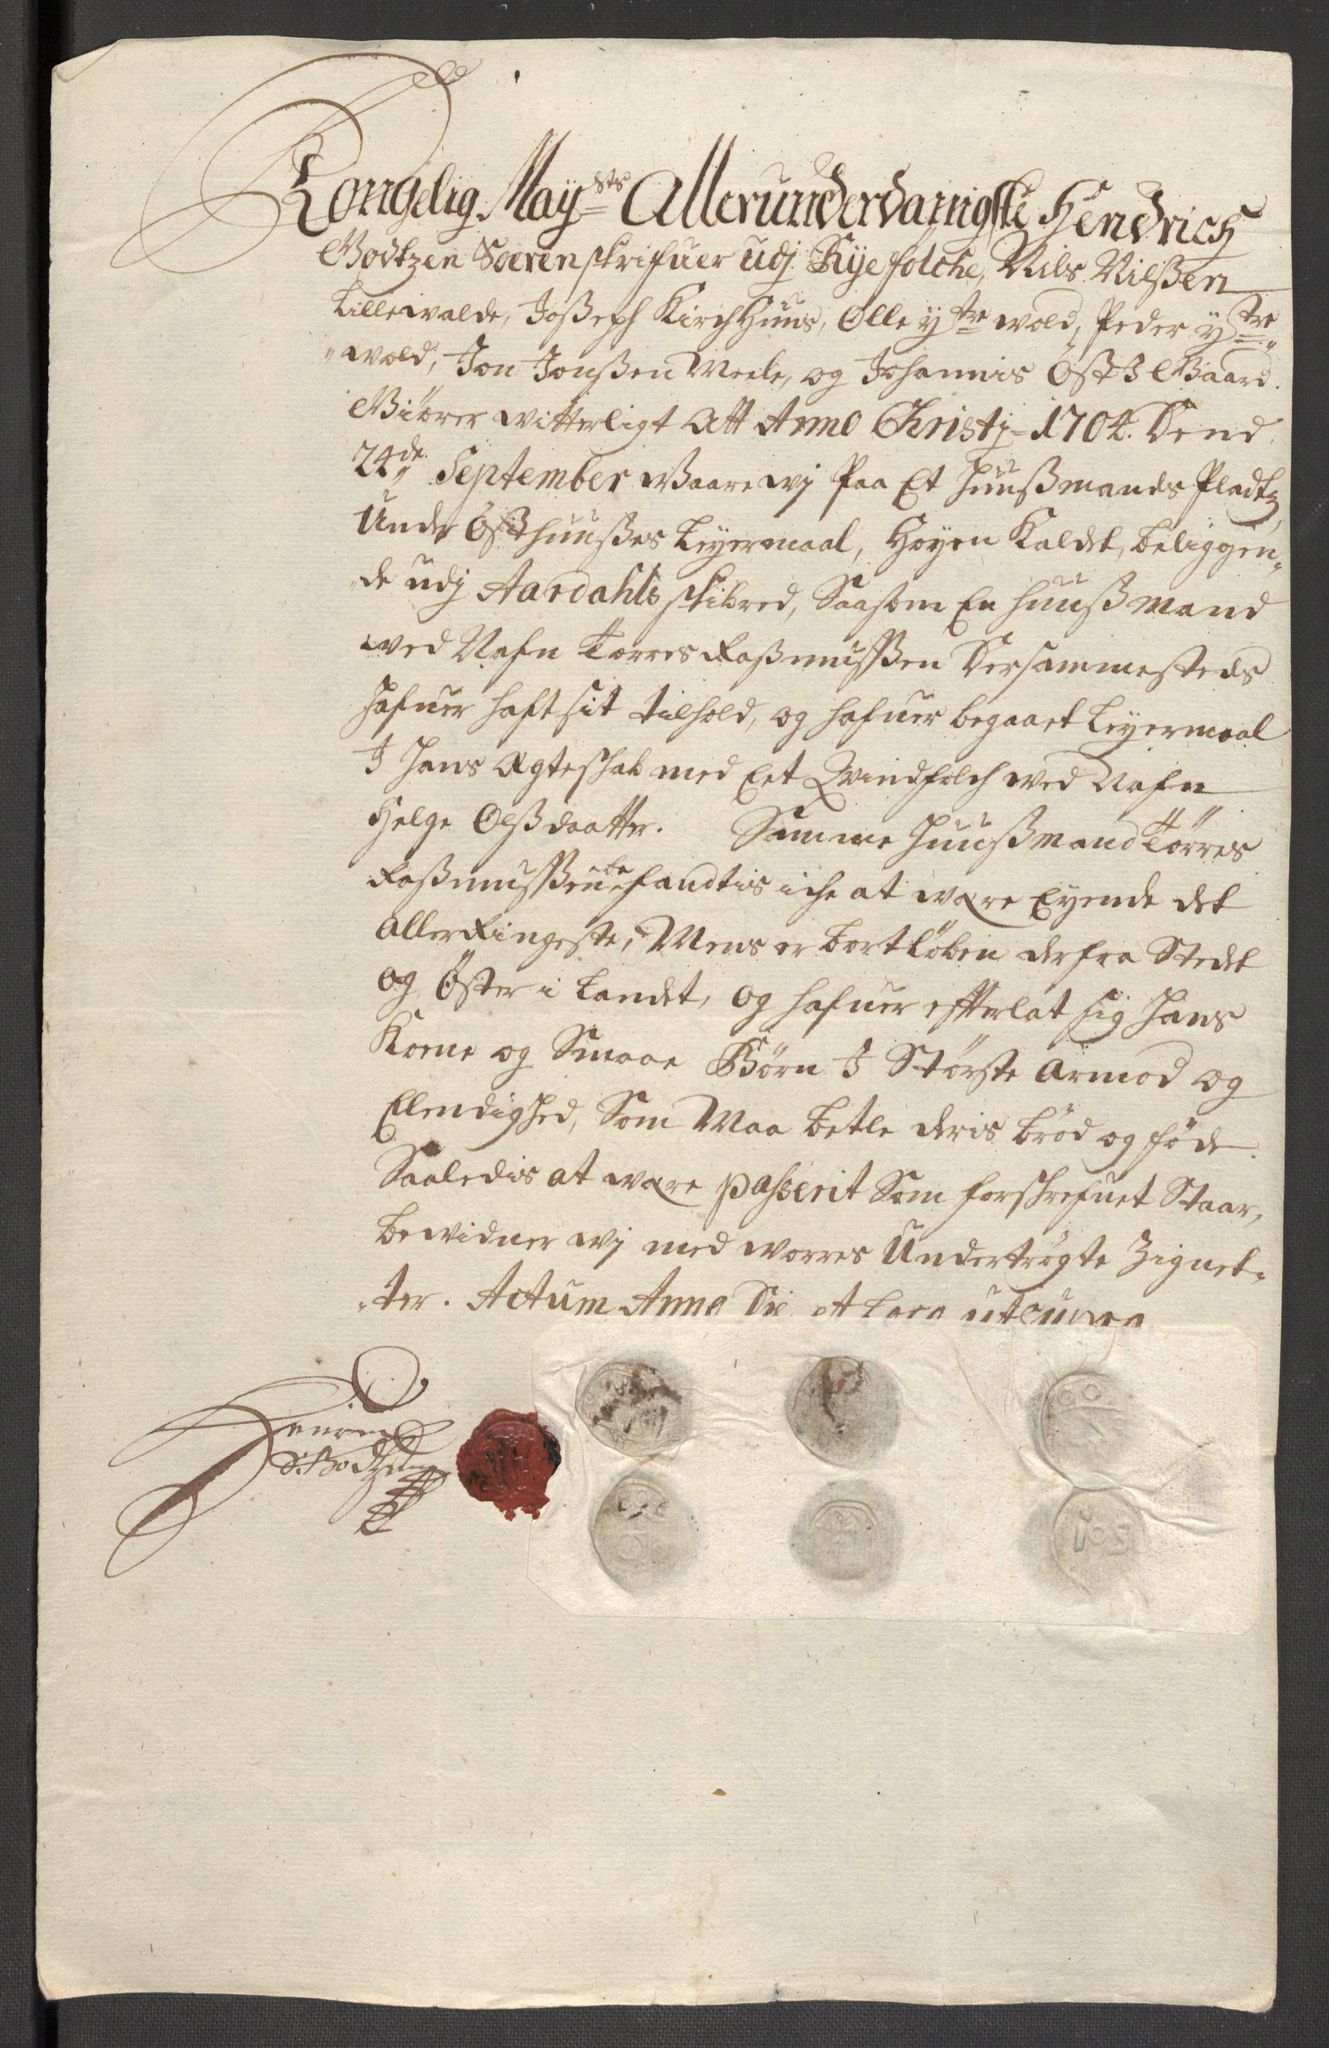 Kongelig May.sts Allerunderdanigste Hendrich
Godtzen Sorenskrifuer udj Ryefölcke, Nils Nilßen
Lillewalde, Joßeph Kirchhuus, Olle ÿtre wold, Peder ÿtre
"wold, Jon Jonßen Meele, og Johannis Öst J Gaard.
Giörer witterligt Att Anno Christj 1704. Dend
24de September Waare wj Paa Et Huußmands Pladtz
Under Östhuußes Leyermaal, Høyen Kaldet, beliggen„
„de udj Aardahls skibred, Saasom En huußmand
wed Nafn Torres Raßmussßen Dersammesteds
hafuer haft sit tilhold, og hafuer begaaet Leyermaal
J hans Ægteskab med Eet Qvindfolch wed Nafn
Helge Olßdaatter. Samme Huußmand Törres
Raßmussßen befandtis iche at være Eyende det
allerRingeste, Mens er bortLöben derfra Stedet
og Öster i Landet, og hafuer efterlat sig hans
Kone og Smaae Börn J Störste Armod og
Elendighed, Som Maa betle deris bröd og föde.
Saaledis at være passerit Som forschrefuet Staar,
bewidner wj med worres Undertrögte Zignet„
„ter. Actum Anno Die et Loco ut Supra
Henrich
Godtzen
105